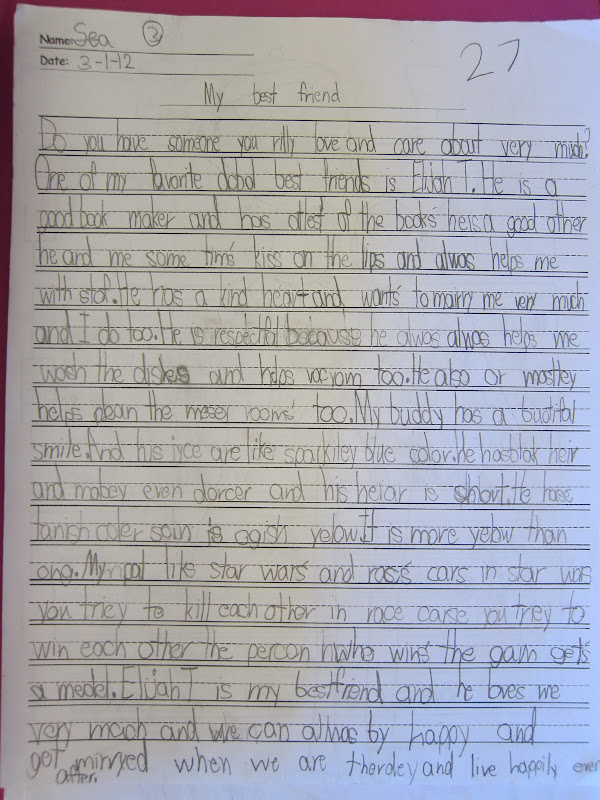 Name: Sea 3
Date: 3-1-12
27
My best friend
Do you have someone you rilly love and care about very much?
One of my favorite dobol best friends is Elijah T. He is a
good book maker and has of the books he is a good other
he and me some tim's kiss on the lips and alwas helps me
with stof. He has a kind heart and wants to marry me very much
and I do too. He is respectful because he alwas alwas helps me
wosh the dishes and helps vacyom too. He also or mostley
helps clean the messy rooms too. My buddy has a butifal
smile. And his iyce are like sparkiley blue color. he has blak heir
and mabey even darcer and his heiar is short. He hase
tanish coler scin is agish yelow. It is more yelow than
ong. My pal like star wars and rases cars in star wars
you triey to kill each other in race carse you trey to
win each other the percon who wins the gam gets
a medel. Elijah T is my best friend and he loves me
very much and we can alwas by happy and
get mirryed when we are and live happily ever
after.